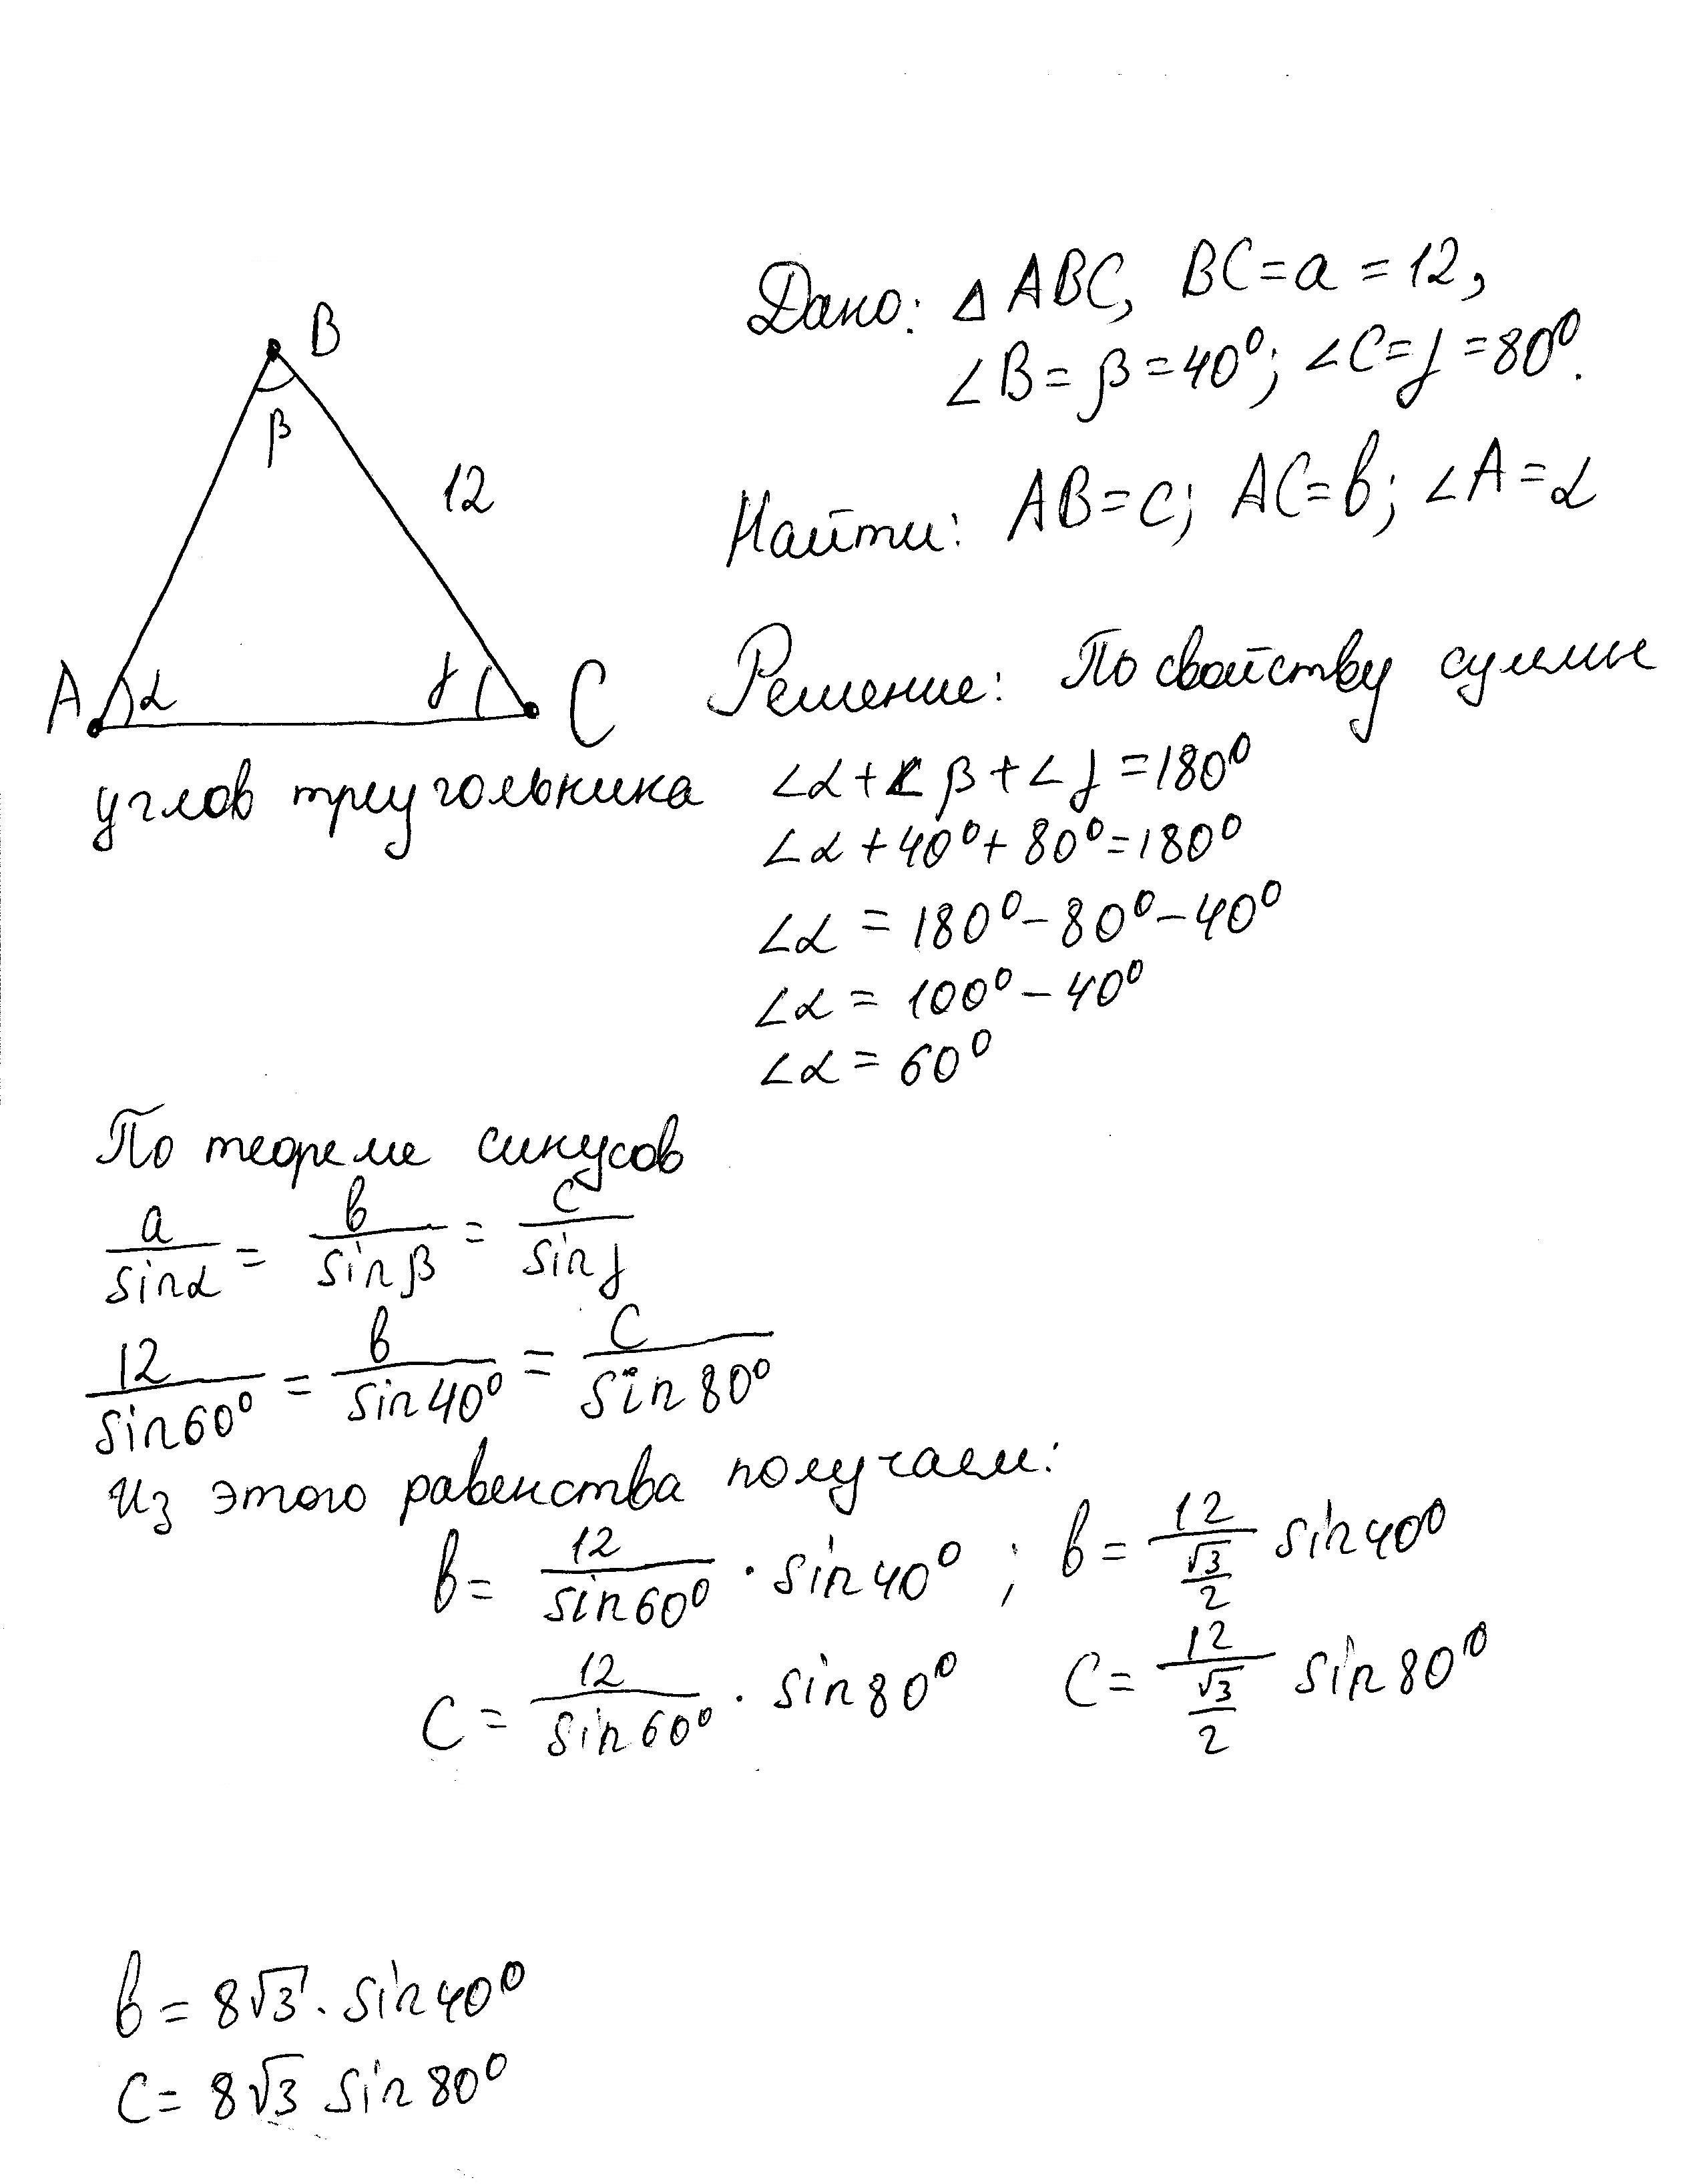 Дано: △ ABC, BC = a = 12,
∠B = β = 40°; ∠C = γ = 80°.
Найти: AB = c; AC = b; ∠A = α
B
β
12
A
α
γ
C
Решение: По свойству суммы
углов треугольника ∠α + ∠β + ∠γ = 180°
∠α + 40° + 80° = 180°
∠α = 180° − 80° − 40°
∠α = 100° − 40°
∠α = 60°
По теореме синусов
a/sinα = b/sinβ = c/sinγ
12/sin60° = b/sin40° = c/sin80°
Из этого равенства получаем:
b = 12/sin60° · sin40° ; b = 12/(√3/2) sin40°
c = 12/sin60° · sin80° c = 12/(√3/2) sin80°
b = 8√3 · sin40°
c = 8√3 sin80°